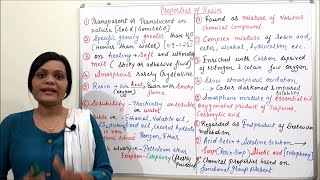 Properties of Resin
① Transparent or Translucent in
nature (Solid/Semisolid)
② Specific gravity greater than H₂O
(Heavier than water) (0.9-1.25)
③ on heating → Soft and ultimately
melt (sticky or adhesive fluid)
④ Amorphous rarely Crystalline
⑤ Resin + air → Burn with Smoky
⑥ Solubility → Practically insoluble
in water
Ethanol, volatile oil
Benzene, Ether
Petroleum ether
Exception - Colophony (freshly
⑧ Found as mixture of various
chemical compound.
⑨ Complex mixture of Resin acid,
ester, alcohol, hydrocarbon etc.
⑩ Enriched with Carbon, deprived
of nitrogen & contain few oxygen
Slow atmospheric oxidation
→ Color darkened & impaired
solubility
Amorphous mixture of essential oil
oxygenated product of Terpene,
Carboxylic acid
Regarded as Endproduct of Destructive
metabolism
Acid Resin + Alkaline solution →
Soap
Abietic acid (Colophony)
Chemical properties based on
functional group present